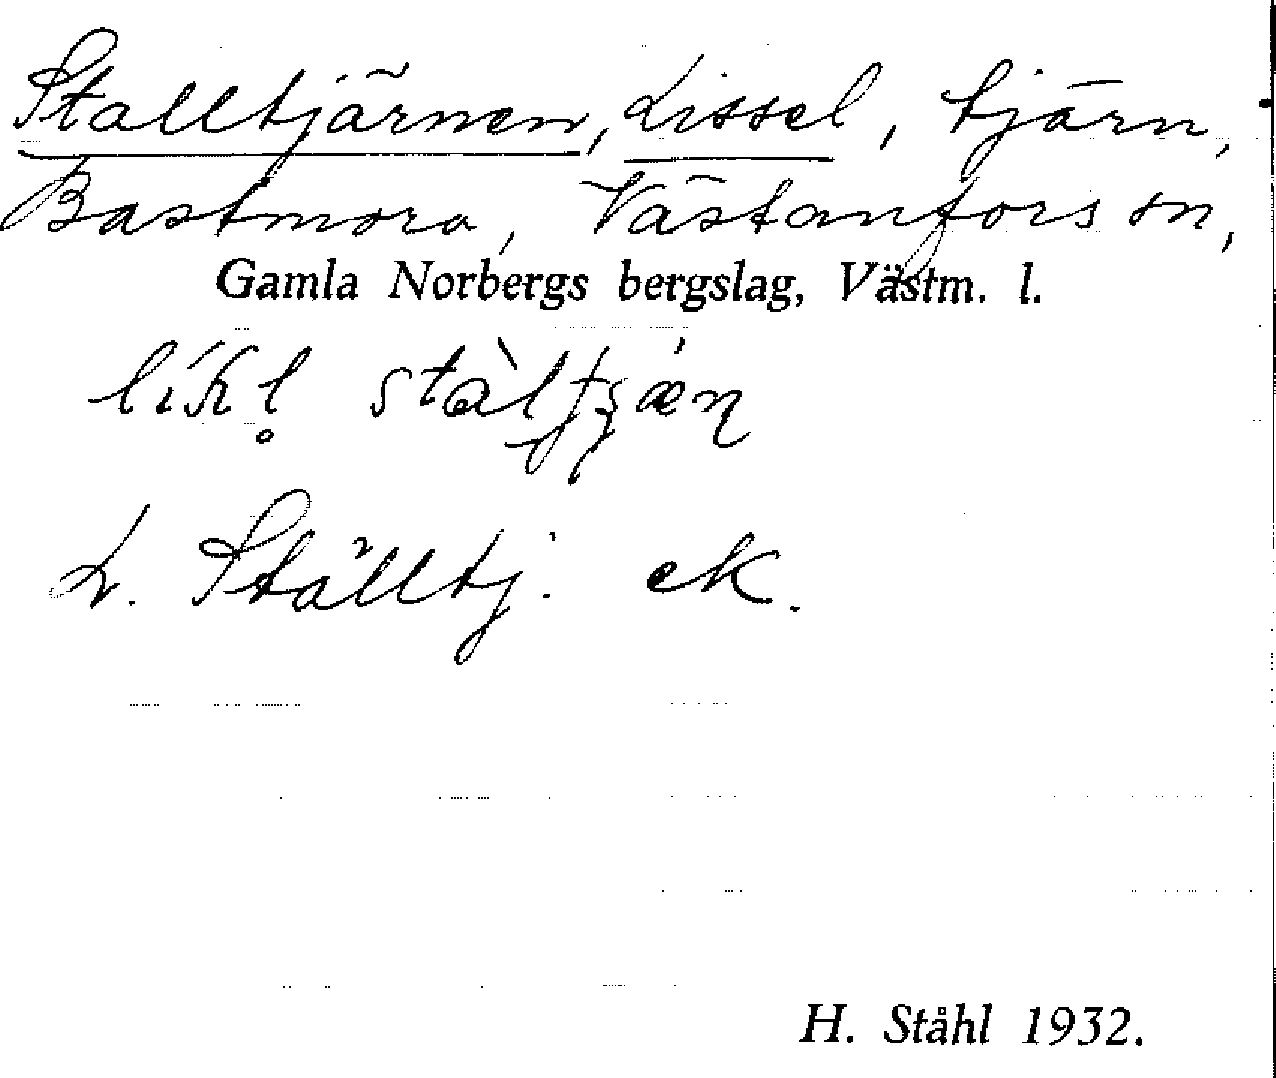 Stalltjärnen, Lissel, tjärn,
Bastmora, Västanfors sn,
Gamla Norbergs bergslag, Västm. l.
L. Ställtj. ek.
H. Ståhl 1932.